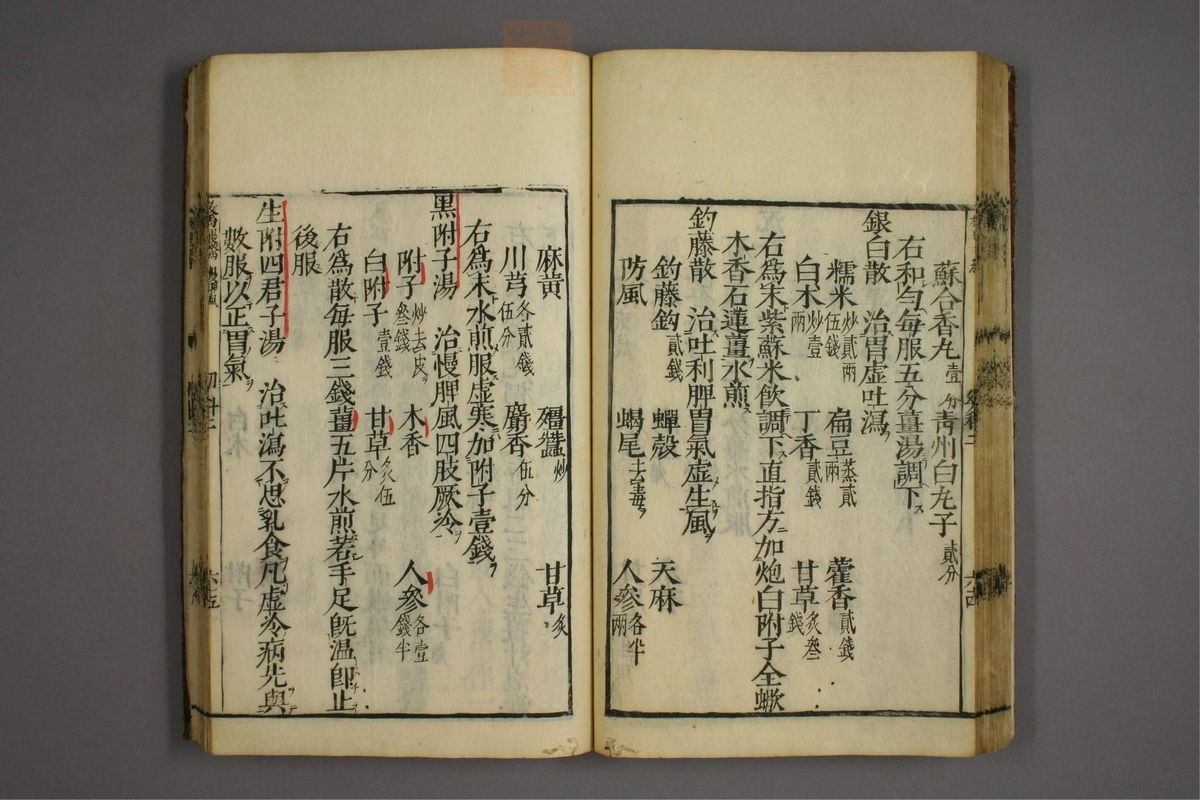 蘇合香丸壹分 青州白丸子貳分
右和勻每服五分薑湯調下
銀白散 治胃虛吐瀉
糯米炒貳兩伍錢 扁豆蒸貳兩 藿香貳錢
白木炒壹兩 丁香貳錢 甘草炙叄錢
右爲末紫蘇米飲調下直指方加炮白附子全蠍
木香石蓮薑水煎
釣藤散 治吐利脾胃氣虛生風
釣藤鈎貳錢 蟬殼 天麻
防風 蝎尾去毒 人參各半兩
麻黄 殭蠶炒 甘草炙
川芎各貳錢伍分 麝香伍分
右爲末水煎服虛寒加附子壹錢
黑附子湯 治慢脾風四肢厥冷
附子炒去皮叄錢 木香 人參各壹錢半
白附子壹錢 甘草炙伍分
右爲散每服三錢薑五片水煎若手足旣温卽止
後服
生附四君子湯 治吐瀉不思乳食凡虛冷病先與
數服以正胃氣